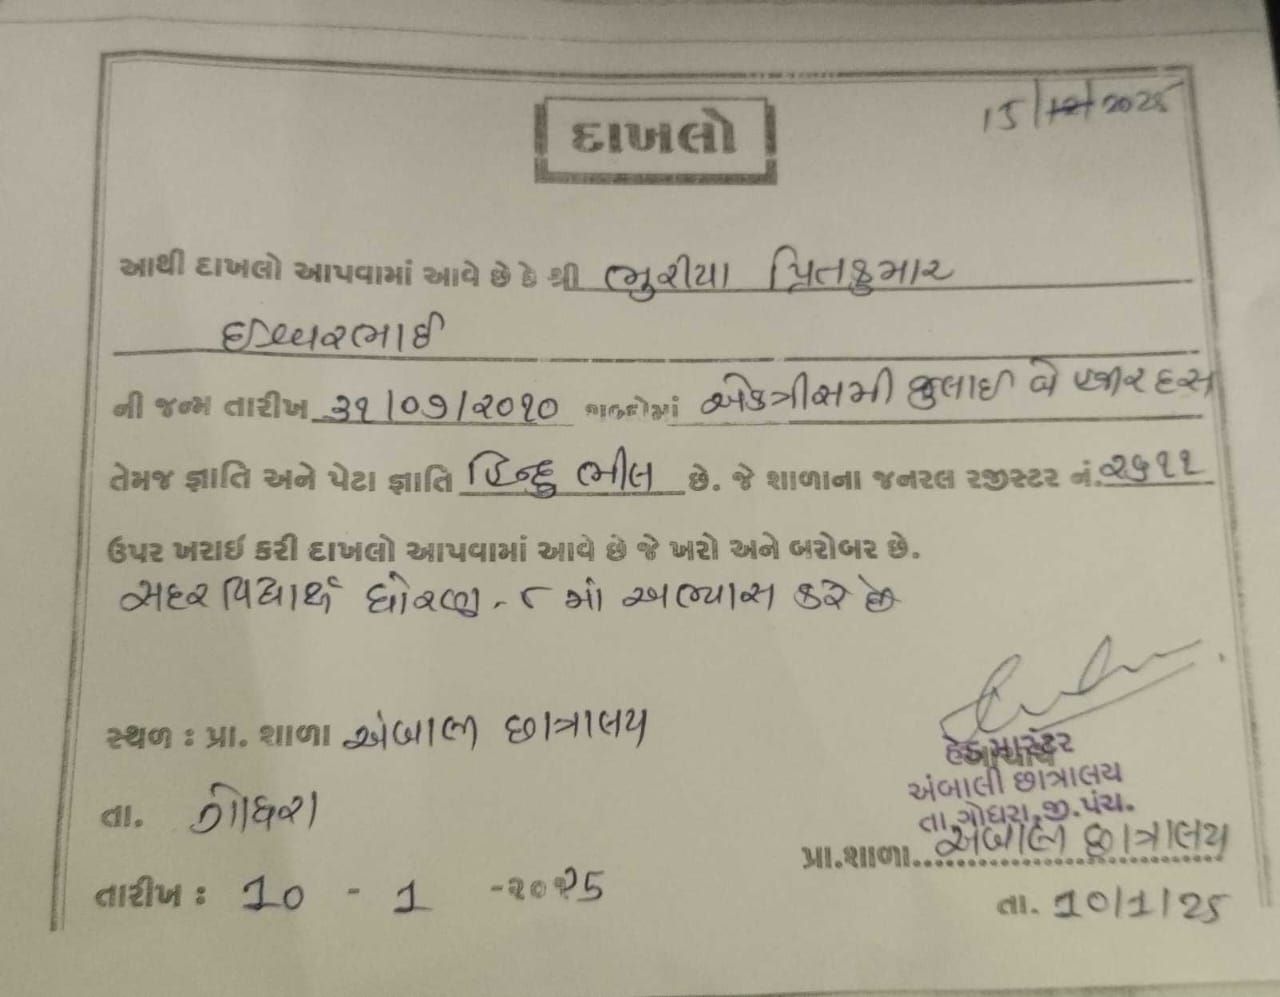 15/12/2025
દાખલો
આથી દાખલો આપવામાં આવે છે કે શ્રી ભુરીયા પ્રિતકુમાર
ઇશ્વરભાઈ
ની જન્મ તારીખ ૩૧/૦૭/૨૦૧૦ શબ્દોમાં એકત્રીસમી જુલાઈ બે હજાર દસ
તેમજ જ્ઞાતિ અને પેટા જ્ઞાતિ હિન્દુ ભીલ છે. જે શાળાના જનરલ રજીસ્ટર નં. ૨૫૧૧
ઉપર ખરાઈ કરી દાખલો આપવામાં આવે છે જે ખરો અને બરોબર છે.
સદર વિદ્યાર્થી ધોરણ - ૮ માં અભ્યાસ કરે છે
સ્થળ : પ્રા. શાળા અંબાલી છાત્રાલય
હેડ માસ્ટર
અંબાલી છાત્રાલય
તા. ગોધરા, જી.પંચ.
તા. ગોધરા
પ્રા.શાળા. અંબાલી છાત્રાલય
તારીખ : 10 - 1 -૨૦૨5
તા. 10/1/25